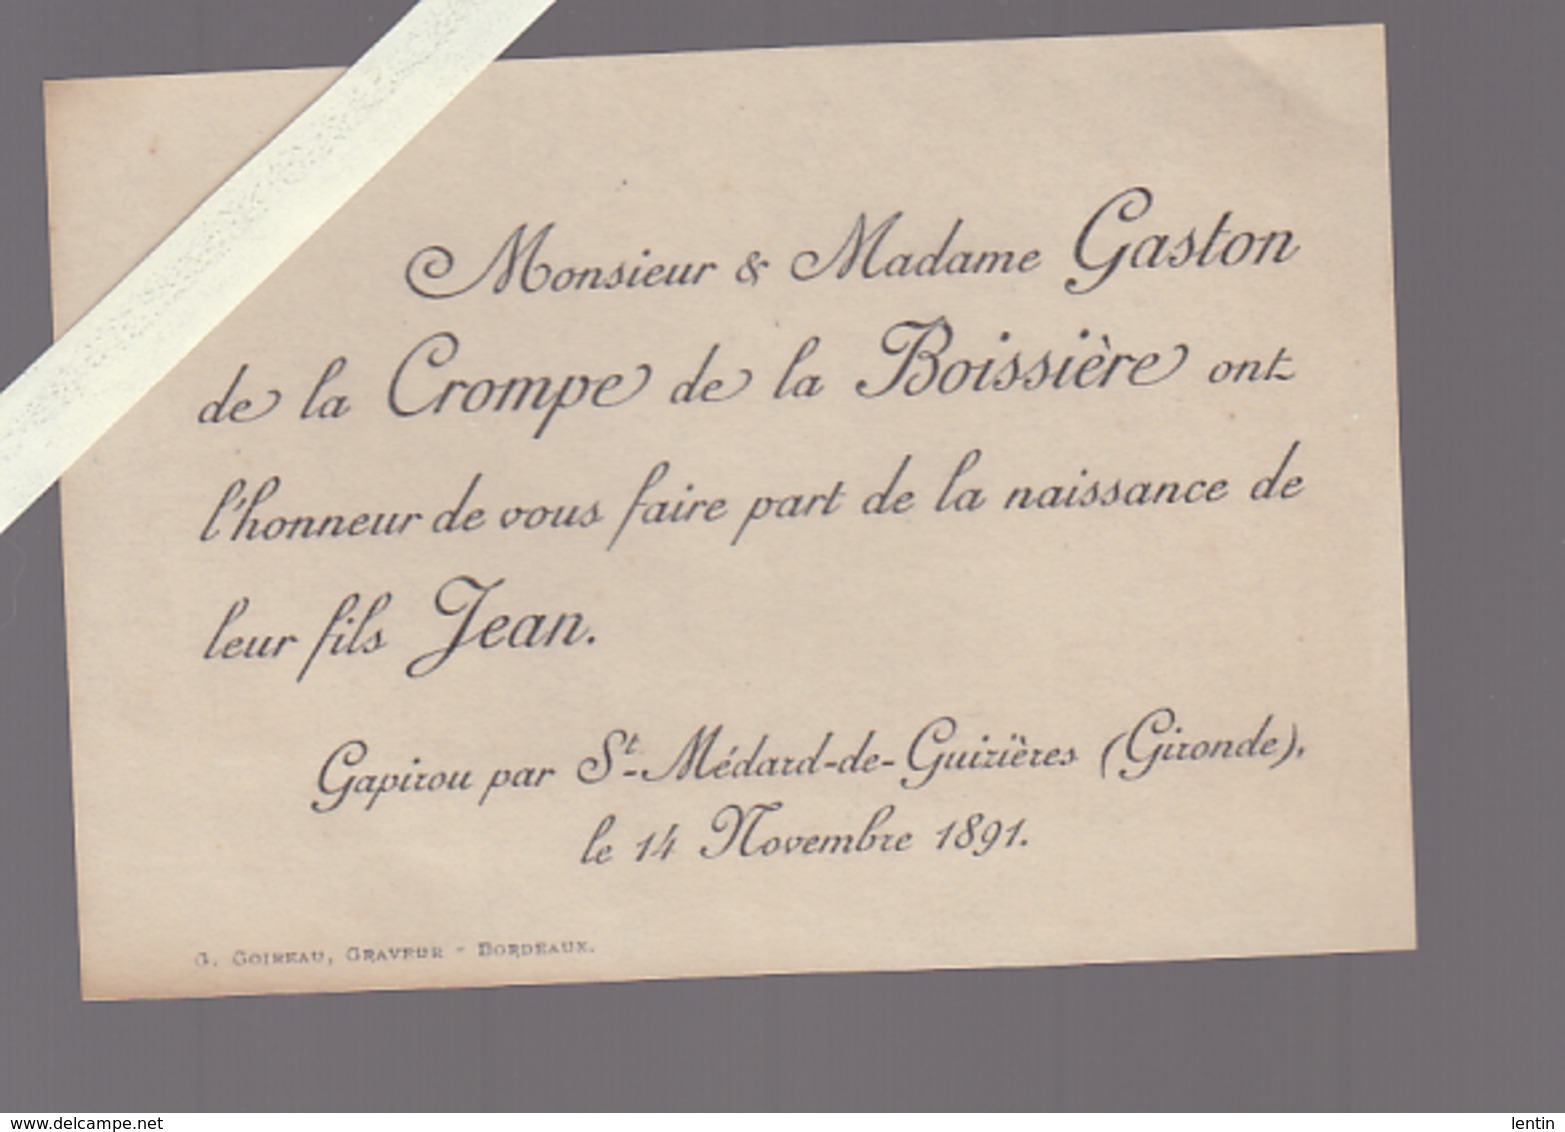 Monsieur & Madame Gaston
de la Crompe de la Boissière ont
l'honneur de vous faire part de la naissance de
leur fils Jean.
Gapirou par St-Médard-de-Guizières (Gironde),
le 14 Novembre 1891.
G. Goireau, Graveur - Bordeaux.
www.delcampe.net
lentin